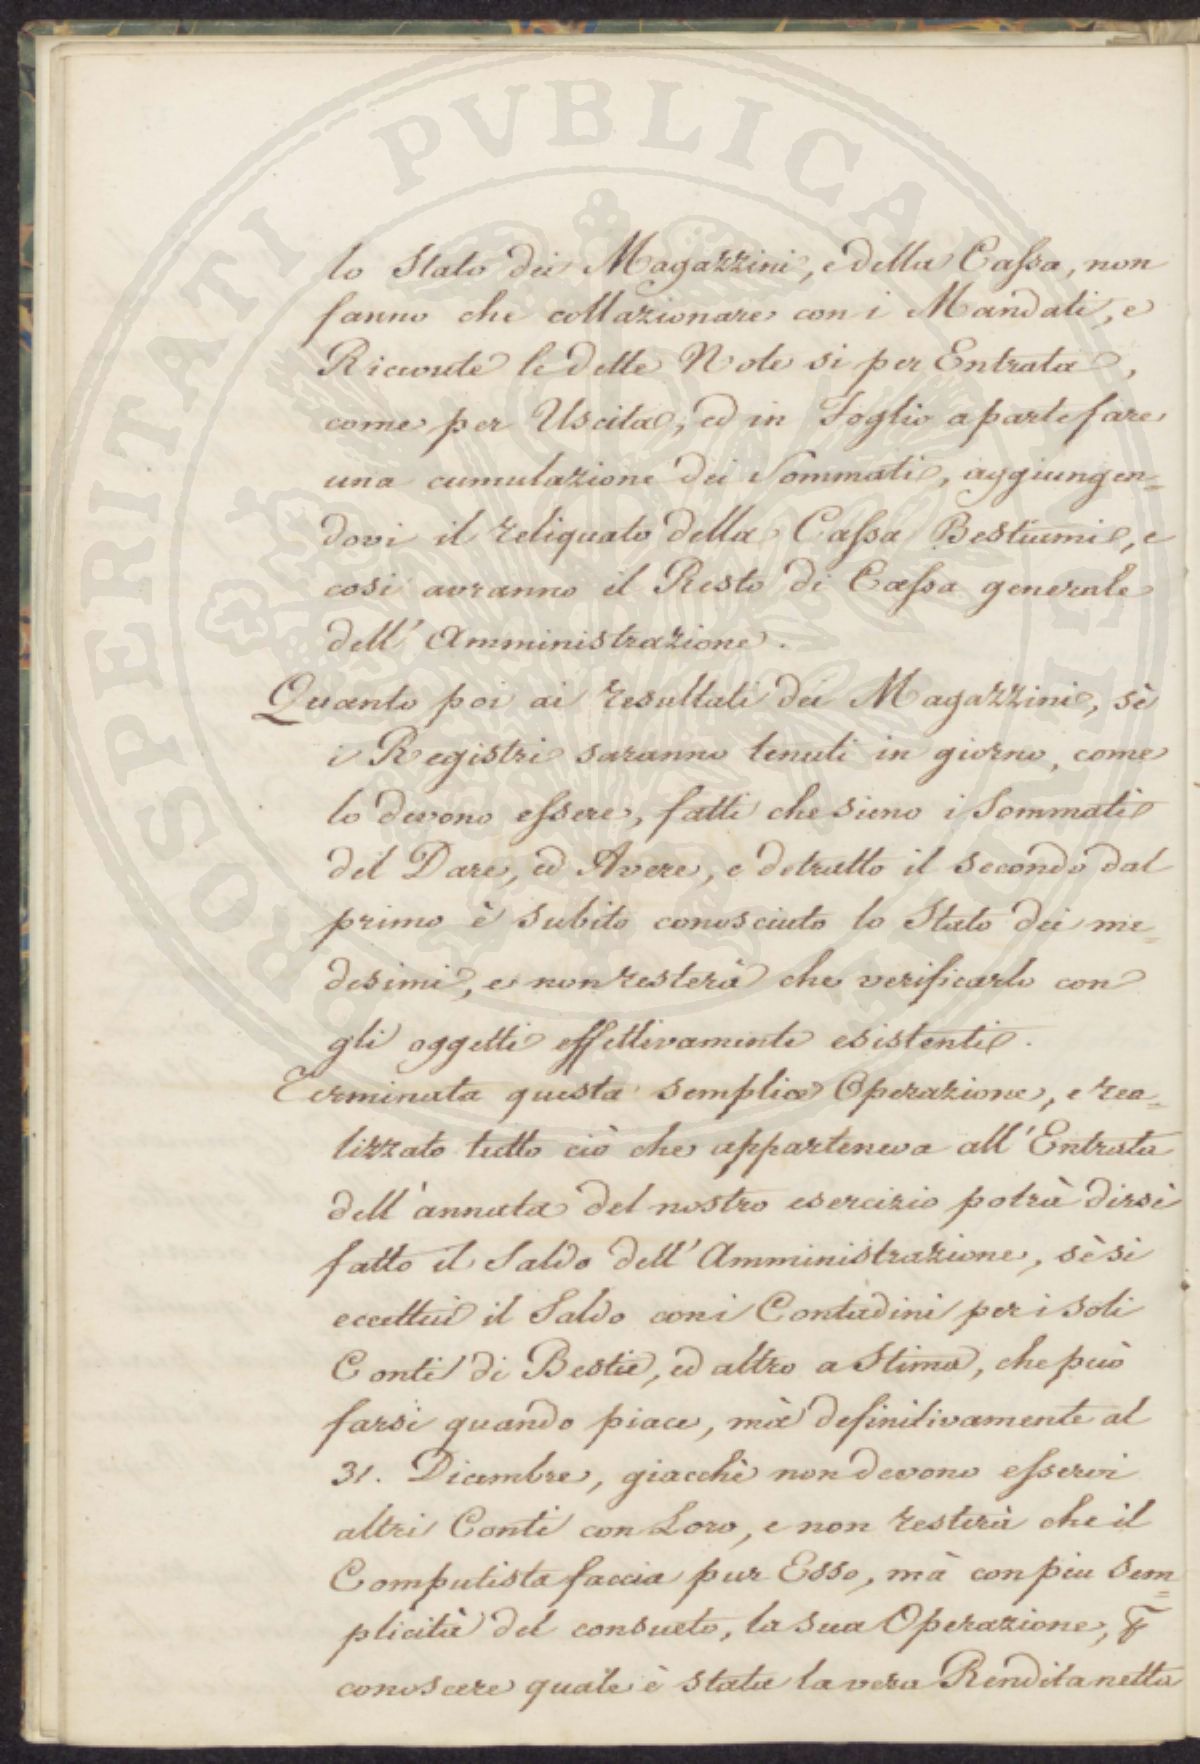 lo Stato dei Magazzini, e della Cassa, non
fanno che collazionare con i Mandati, e
Ricevute le dette Note si per Entrata,
come per Uscita, ed in Foglio aparte fare
una cumulazione dei Sommati, aggiungen=
dovi il reliquato della Cassa Bestiami, e
cosi avranno il Resto di Cassa generale
dell' Amministrazione.
Quanto poi ai resultati dei Magazzini, sè
i Registri saranno tenuti in giorno, come
lo devono essere, fatti che sieno i Sommati
del Dare, ed Avere, e detratto il secondo dal
primo è subito conosciuto lo Stato dei me=
desimi, e non resterà che verificarlo con
gli oggetti effettivamente esistenti.
Terminata questa semplice Operazione, e rea=
lizzato tutto ciò che apparteneva all' Entrata
dell' annata del nostro esercizio potrà dirsi
fatto il Saldo dell' Amministrazione, sè si
eccettui il Saldo con i Contadini per i soli
Conti di Bestie, ed altro a Stima, che può
farsi quando piace, mà definitivamente al
31. Dicembre, giacchè non devono esservi
altri Conti con Loro, e non resterà che il
Computista faccia pur Esso, mà con piu sem=
plicità del consueto, la sua Operazione, 
conoscere quale è stata la vera Rendita netta
PROSPERITATI PVBLICAE